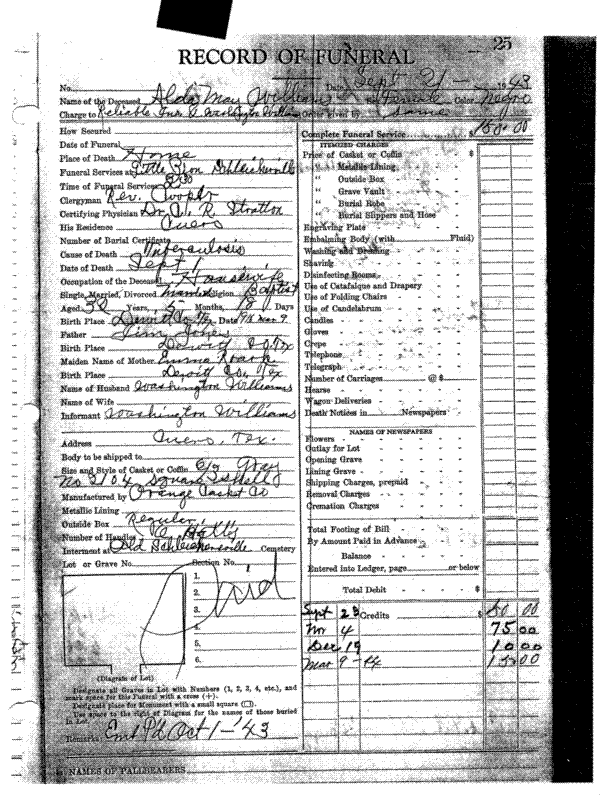 25
RECORD OF FUNERAL
No. Date Sept 21 - 1943
Name of the Deceased Alda May Williams Female Color Negro
Charge to Reliable Washington Williams Order given by Same
How Secured
Date of Funeral
Place of Death Home
Funeral Services at Little Zion
Time of Funeral Services
Clergyman Rev. Cooper
Certifying Physician Dr. R. Stratton
His Residence Cuero
Number of Burial Certificate
Cause of Death Tuberculosis
Date of Death Sept
Occupation of the Deceased Housewife
Single, Married, Divorced married Religion Baptist
Aged Years, Months, 18 Days
Birth Place Dewitt Co Tex Date Mar 9
Father Jim Jones
Birth Place Dewitt Co Tex
Maiden Name of Mother Emma Roark
Birth Place Dewitt Co, Tex
Name of Husband Washington Williams
Name of Wife
Informant Washington Williams
Address Cuero, Tex.
Body to be shipped to
Size and Style of Casket or Coffin 6/3 Gray
No 3104 Square
Manufactured by Orange Casket Co
Metallic Lining
Outside Box Regular
Number of Handles
Interment at Old Cemetery
Lot or Grave No. Section No.
1.
2.
3.
4.
5.
6.
Paid
(Diagram of Lot)
Designate all Graves in Lot with Numbers (1, 2, 3, 4, etc.), and
mark space for this Funeral with a cross (+).
Designate place for Monument with a small square (□).
Use space to the right of Diagram for the names of those buried
in Lot
Remarks Pd Oct 1 - '43
NAMES OF PALLBEARERS
Complete Funeral Service $ 150.00
ITEMIZED CHARGES
Price of Casket or Coffin $
" Metallic Lining
" Outside Box
" Grave Vault
" Burial Robe
" Burial Slippers and Hose
Engraving Plate
Embalming Body (with Fluid)
Washing and Dressing
Shaving
Disinfecting Rooms
Use of Catafalque and Drapery
Use of Folding Chairs
Use of Candelabrum
Candles
Gloves
Crepe
Telephone
Telegraph
Number of Carriages @ $
Hearse
Wagon Deliveries
Death Notices in Newspapers
NAMES OF NEWSPAPERS
Flowers
Outlay for Lot
Opening Grave
Lining Grave
Shipping Charges, prepaid
Removal Charges
Cremation Charges
Total Footing of Bill
By Amount Paid in Advance
Balance
Entered into Ledger, page or below
Total Debit $
Sept 23 Credits $ 50 00
Nov 4 75 00
Dec 19 10 00
Mar 9 - 44 15 00